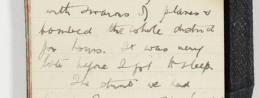 with swarms of planes &
bombed the whole district
for hours. It was very
late before I got to sleep.
The stunt we had